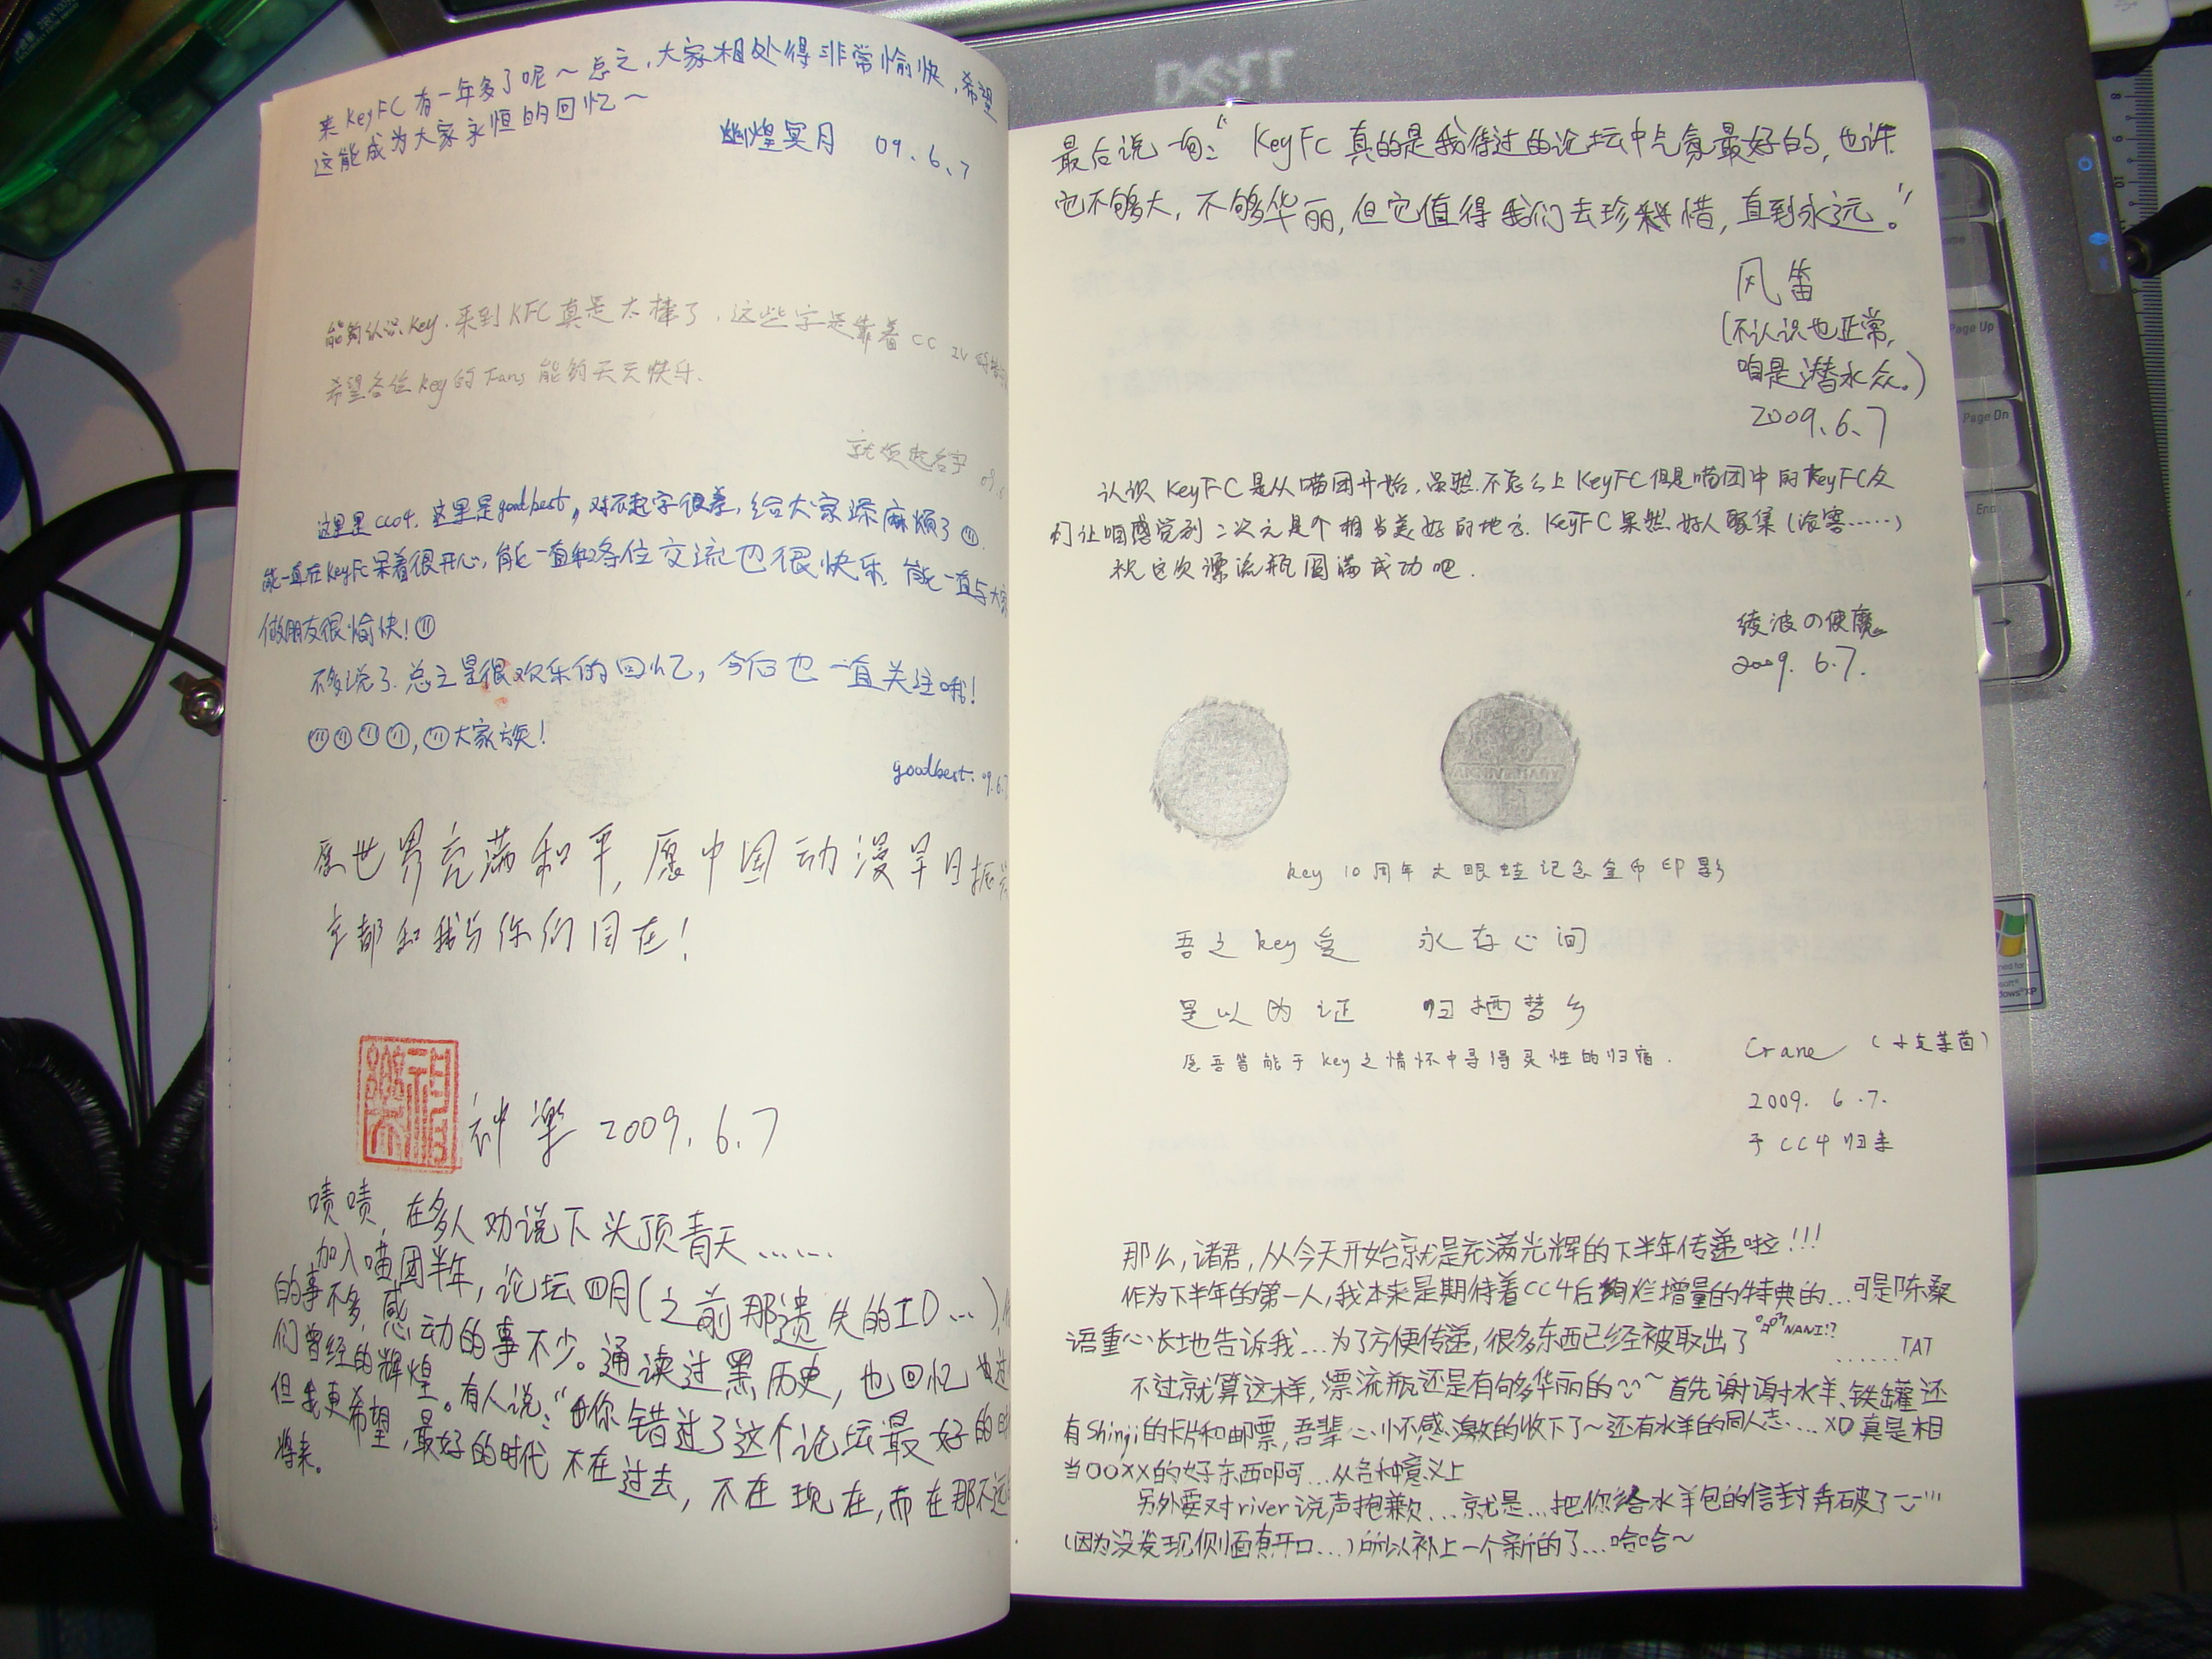 来KeyFC有一年多了呢～总之，大家相处得非常愉快，希望
这能成为大家永恒的回忆～
幽煌冥月 09.6.7
能够认识Key.来到KFC真是太棒了，这些字是靠着CC
希望各位Key的Fans能够天天快乐.
就烦起名字
这里是cc04，这里是goodbest，对不起字很差，给大家添麻烦了
能一直在KeyFC呆着很开心，能一直和各位交流也很快乐，能一直与大家
做朋友很愉快！
不多说了.总之是很欢乐的回忆，今后也一直关注哦！
大家族！
goodbest. 09.6.7
愿世界充满和平，愿中国动漫早日振兴
京都和我与你们同在！
神楽
神楽 2009.6.7
啧啧，在多人劝说下头顶青天……
加入喵团半年，论坛四月（之前那遗失的ID…）
的事不多，感动的事不少。通读过黑历史，也回忆过
们曾经的辉煌。有人说：“你错过了这个论坛最好的时
但我更希望，最好的时代不在过去，不在现在，而在那不远
将来。
DELL
最后说一句：“KeyFC真的是我待过的论坛中气氛最好的，也许
它不够大，不够华丽，但它值得我们去珍惜，直到永远。”
风笛
（不认识也正常，
咱是潜水众。）
2009.6.7
认识KeyFC是从喵团开始，虽然不怎么上KeyFC但是喵团中的KeyFC众
们让咱感觉到二次元是个相当美好的地方.KeyFC果然好人聚集（滚雾……）
祝这次漂流瓶圆满成功吧.
绫波の使魔
2009.6.7.
key 10周年大眼蛙记念金币印影
吾之key爱 永存心间
是以为证 归栖梦乡
愿吾皆能于key之情怀中寻得灵性的归宿.
Crane （小克莱茵）
2009.6.7.
于CC4归来
那么，诸君，从今天开始就是充满光辉的下半年传递啦！！！
作为下半年的第一人，我本来是期待着CC4后绚烂增量的特典的…可是陈桑
语重心长地告诉我…为了方便传递，很多东西已经被取出了 NANI!? ……TAT
不过就算这样，漂流瓶还是有够多华丽的～首先谢谢水羊、铁罐还
有Shinji的卡片和邮票，吾辈心怀感激的收下了～还有水羊的同人志…XD真是相
当OOXX的好东西啊啊…从各种意义上
另外要对river说声抱歉…就是…把你给水羊包的信封弄破了
（因为没发现侧面有开口…）所以补上一个新的了…哈哈～
Page Up
Page Dn
End
Windows XP